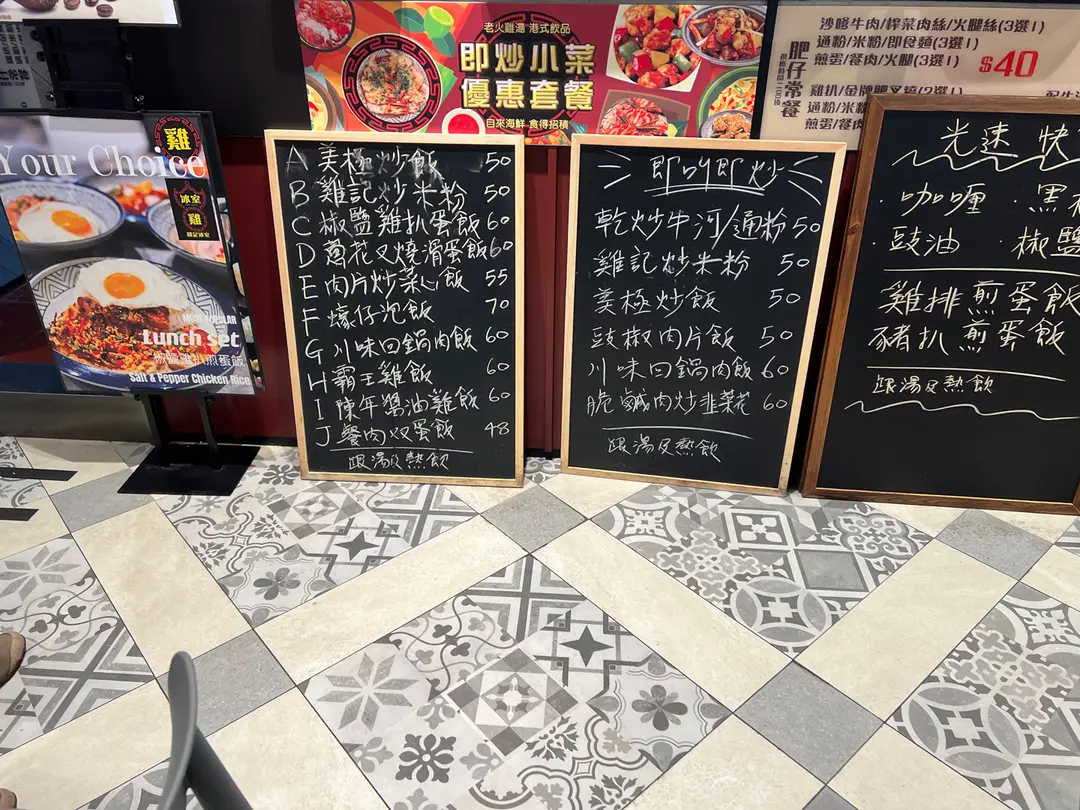 Your Choice
雞
冰室
雞
雞記冰室
MOST POPULAR
Lunch set
椒鹽雞扒煎蛋飯
Salt & Pepper Chicken Rice
老火雞湯 港式飲品
即炒小菜
優惠套餐
自來海鮮 食得招積
肥仔常餐
沙嗲牛肉/榨菜肉絲/火腿絲(3選1)
通粉/米粉/即食麵(3選1)
煎蛋/餐肉/火腿(3選1)
$40
通粉/米粉
煎蛋/餐肉
A 美極炒飯 50
B 雞記炒米粉 50
C 椒鹽雞扒蛋飯 60
D 萬花叉燒滑蛋飯 60
E 肉片炒菜心飯 55
F 蠔仔泡飯 70
G 川味回鍋肉飯 60
H 霸王雞飯 60
I 陳年醬油雞飯 60
J 餐肉双蛋飯 48
跟湯及熱飲
即叫即炒
乾炒牛河/通粉 50
雞記炒米粉 50
美極炒飯 50
豉椒肉片飯 50
川味回鍋肉飯 60
脆鹹肉炒韭菜花 60
跟湯及熱飲
光速快
·咖喱 ·黑
·豉油 ·椒鹽
雞排煎蛋飯
豬扒煎蛋飯
跟湯及熱飲